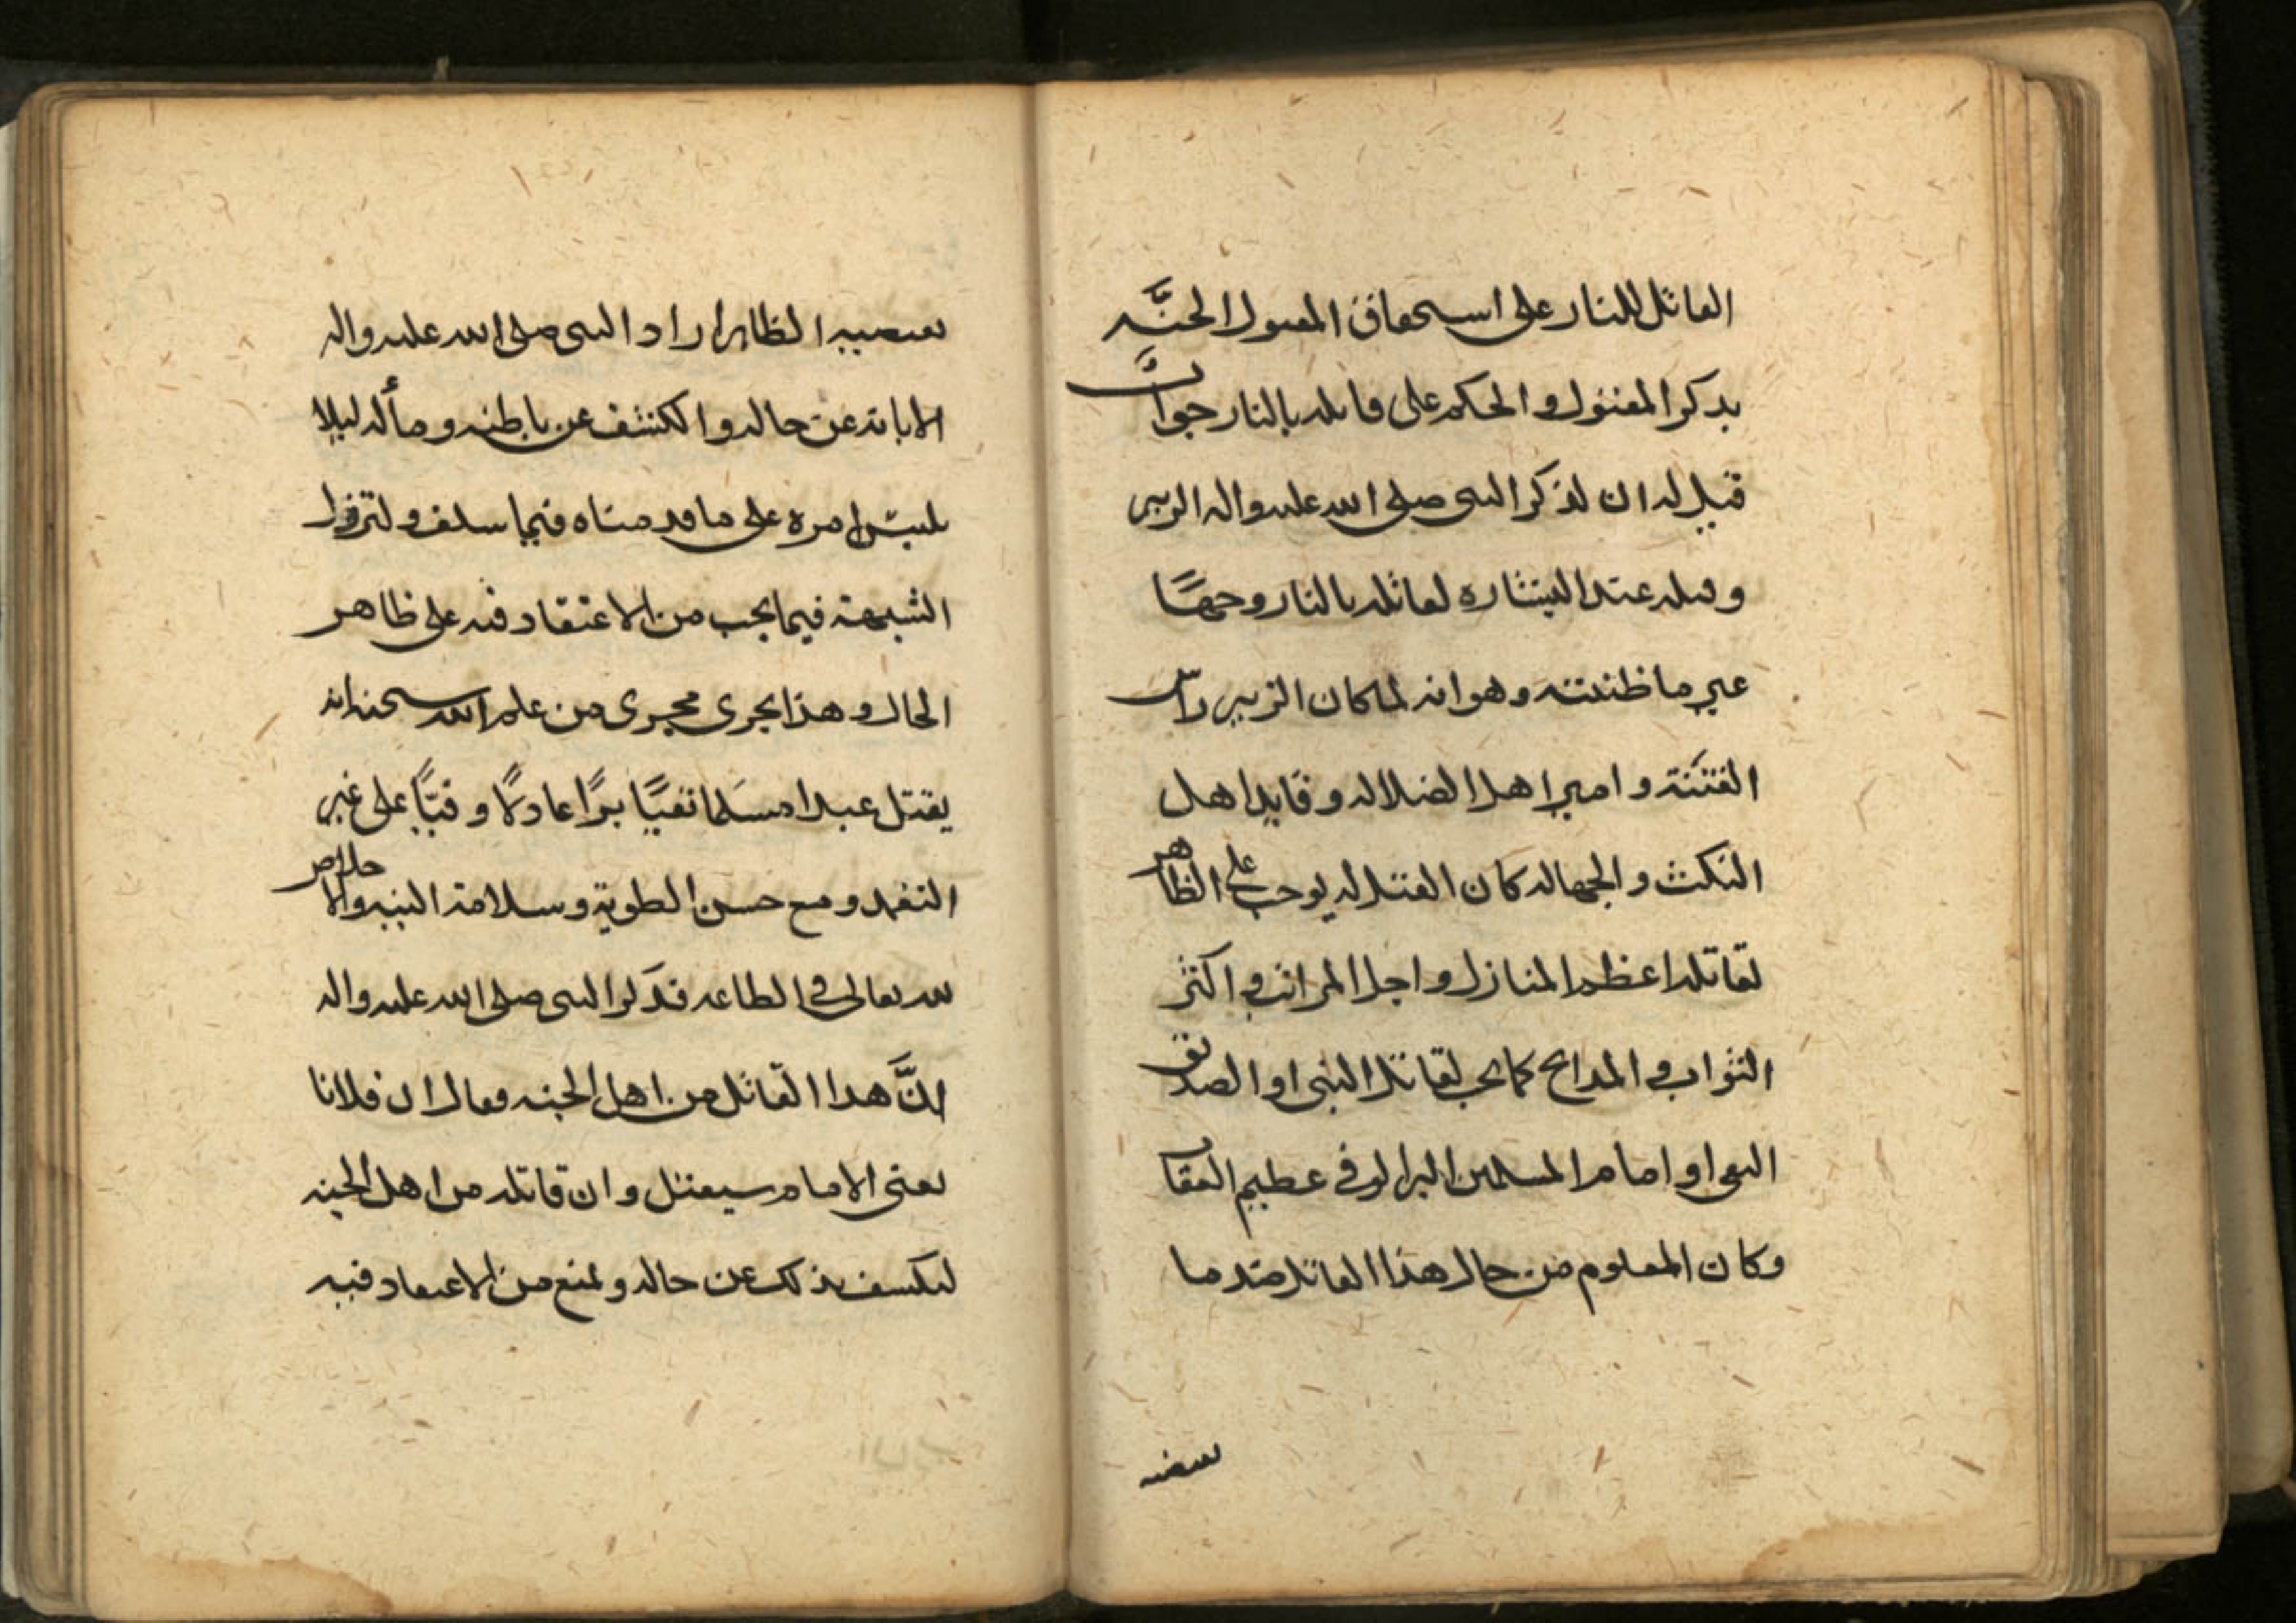 القاتل للنار على استحقاق المقتول الجنَّه
بذكر المقتول والحكم على قاتله بالنار جوابٌ
قيل له ان لذكر النبى صلى الله عليه واله الزبير
وقتله عند البشاره لقاتله بالنار وجهًا
غير ما ظننته وهو انه لما كان الزبير راس
الفتنة وامير اهل الضلاله وقايد اهل
النكث والجهاله كان القتل له يوجب على الظاهر
لقاتله اعظم المنازل واجل المراتب واكثر
الثواب والمدايح كما يجب لقاتل النبى او الصديق
التقى او امام المسلمين البر الوفى عظيم العقاب
وكان المعلوم من حال هذا القاتل ضد ما
يقتضيه
يقتضيه الظاهر اراد النبى صلى الله عليه واله
الابانة عن حاله والكشف عن باطنه ومأله ليلا
يلتبس امره على ما قدمناه فيما سلف ولتزول
الشبهة فيما يجب من الاعتقاد فيه على ظاهر
الحال وهذا يجرى مجرى من علم الله سبحنه انه
يقتل عبدا مسلما تقيًا برًا عادلًا وفيًّا على غير
التعمد ومع حسن الطوية وسلامة النيه والاخلاص
لله تعالى فى الطاعه فذكر النبى صلى الله عليه واله
انَّ هذا القاتل من اهل الجنه وقال ان فلانا
يعنى الامام سيقتل وان قاتله من اهل الجنه
ليكشف بذلك عن حاله ولمنع من الاعتقاد فيه